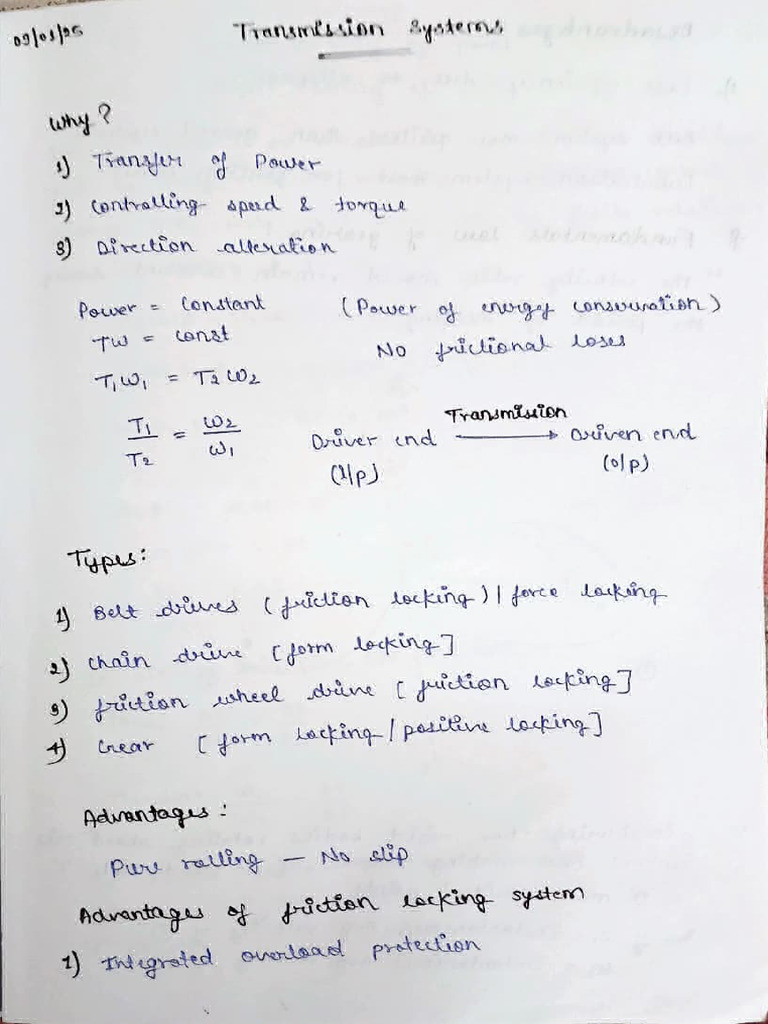 09/01/25
Transmission Systems
Why?
1) Transfer of Power
2) Controlling speed & torque
3) Direction alteration
Power = Constant (Power of energy conservation)
Tω = const No frictional loses
T₁ω₁ = T₂ω₂
T₁/T₂ = ω₂/ω₁
Driver end Transmission → Driven end
(I/p) (o/p)
Types:
1) Belt drives (friction locking) | force locking
2) Chain drive [form locking]
3) friction wheel drive [friction locking]
4) Gear [form locking / positive locking]
Advantages:
Pure rolling — No slip
Advantages of friction locking system
1) Integrated overload protection